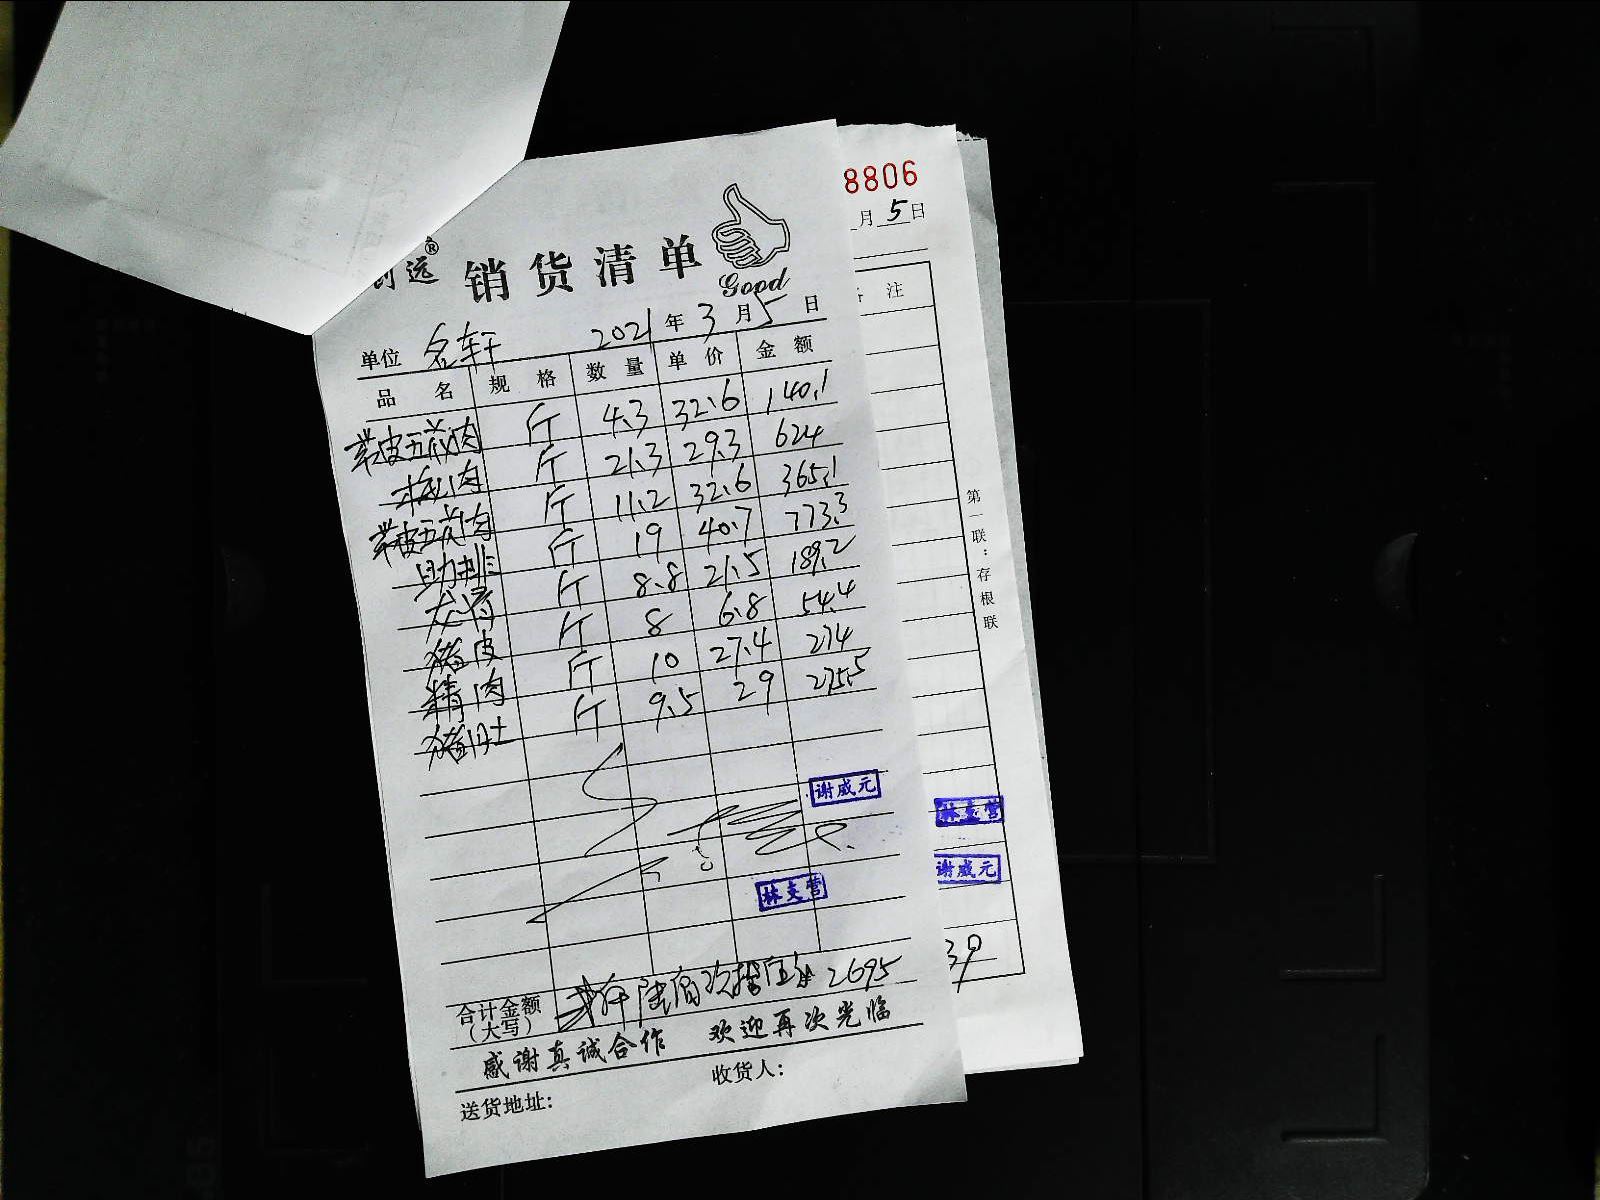 8806
月5日
注
创远® 销货清单
Good
单位 名轩 2021年3月5日
品名 规格 数量 单价 金额
带皮五花肉 斤 4.3 32.6 140.1
梅肉 斤 21.3 29.3 624
带皮五花肉 斤 11.2 32.6 365.1
助排 斤 19 40.7 773.3
龙骨 斤 8.8 21.5 189.2
猪皮 斤 8 6.8 54.4
精肉 斤 10 27.4 274
猪肚 斤 9.5 29 275.5
谢威元
林支营
合计金额(大写) 贰仟陆佰玖拾伍元 2695
感谢真诚合作 欢迎再次光临
收货人:
送货地址:
第一联:存根联
林支营
谢威元
39